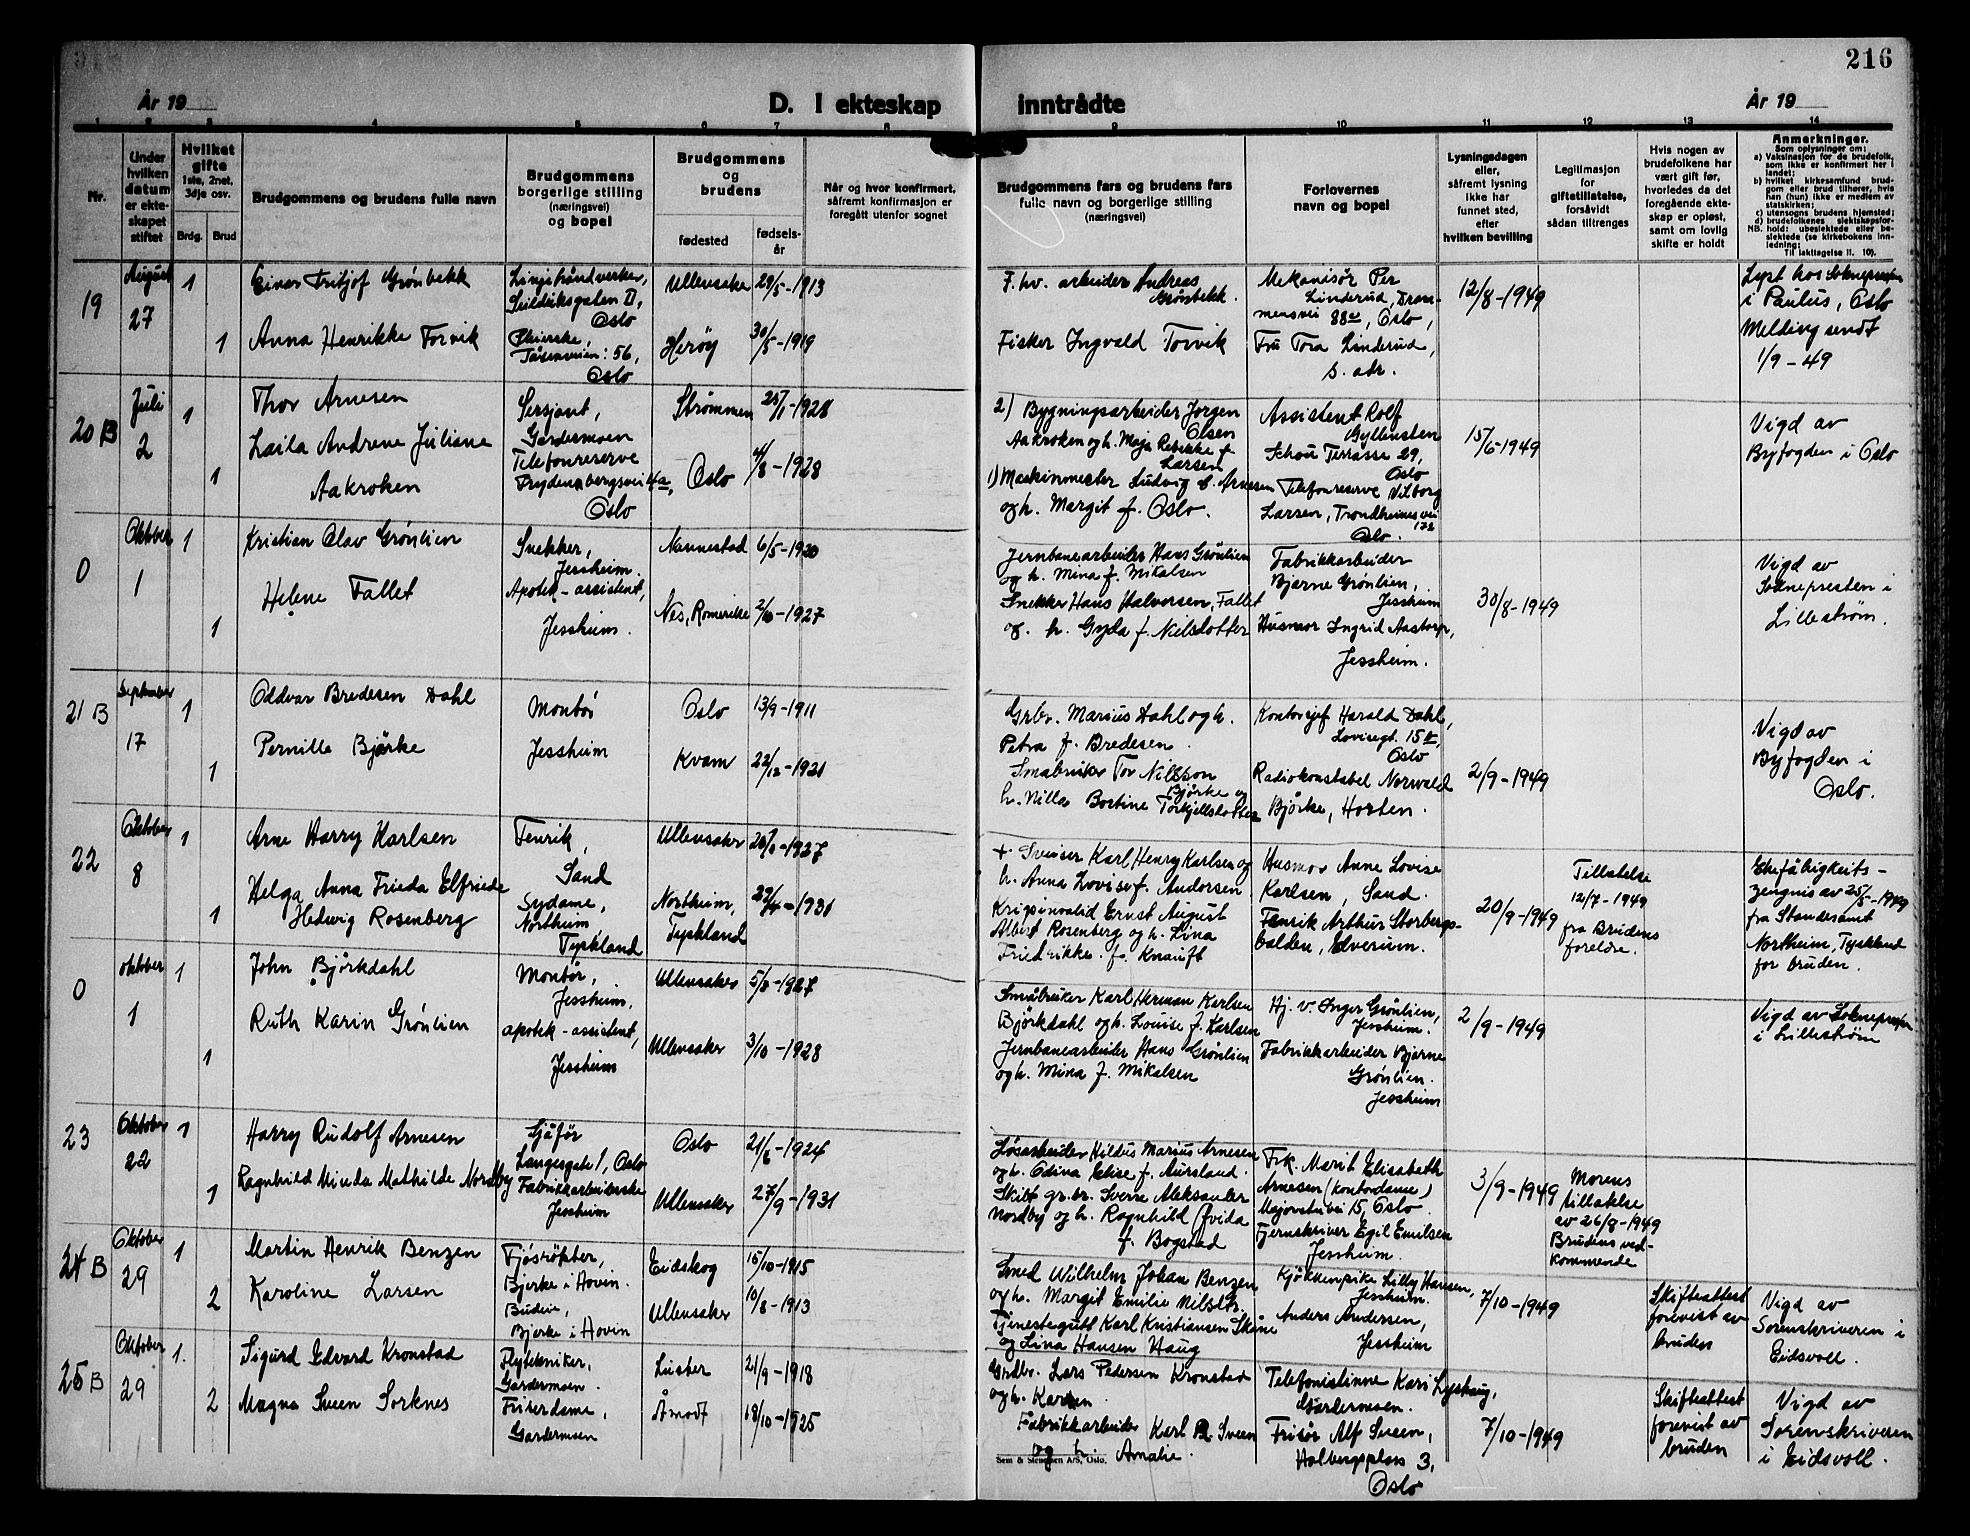 216
År 19
D. I ekteskap
inntrådte
År 19
1 2 3 4 5 6 7 8 9 10 11 12 13 14
Nr.
Under
hvilken
datum
er ekte-
skapet
stiftet
Hvilket
gifte
1ste, 2net,
3dje osv.
Brdg.
Brud
Brudgommens og brudens fulle navn
Brudgommens
borgerlige stilling
(næringsvei)
og bopel
Brudgommens
og
brudens
fødested
fødsels-
år
Når og hvor konfirmert,
såfremt konfirmasjon er
foregått utenfor sognet
Brudgommens fars og brudens fars
fulle navn og borgerlige stilling
(næringsvei)
Forlovernes
navn og bopel
Lysningsdagen
eller,
såfremt lysning
ikke har
funnet sted,
efter
hvilken bevilling
Legitimasjon
for
giftetillatelse,
forsåvidt
sådan tiltrenges
Hvis nogen av
brudefolkene har
vært gift før,
hvorledes da det
foregående ekte-
skap er opløst,
samt om lovlig
skifte er holdt
Anmerkninger.
Som oplysninger om:
a) Vaksinasjon for de brudefolk,
som ikke er konfirmert her i
landet;
b) hvilket kirkesamfund brud-
gom eller brud tilhører, hvis
han (hun) ikke er medlem av
statskirken;
c) utensogns brudens hjemsted;
d) brudefolkenes slektskapsfor-
NB. hold: ubeslektede eller be-
slektede (se kirkebokens inn-
ledning;
Til iakttagelse II. 10).
19
August
27
1
1
Einar Fritjof Grønbekk
Anna Henrikke Torvik
Linjehåndverker,
Seilduksgaten 11,
Oslo
Tåsenveien 56,
Oslo
Ullensaker
Herøy
28/5-1913
30/5-1919
F. hv. arbeider Andreas
Grønbekk.
Fisker Ingvald Torvik
Mekanisør Per
Linderud, Dram-
mensvei 88, Oslo,
Fru Tora Linderud,
s. adr.
12/8-1949
Lyst hos Soknepresten
i Paulus, Oslo
Melding sendt
1/9-49
20 B
Juli
2
1
1
Thor Arnesen
Laila Andrene Juliane
Aakroken
Sersjant,
Gardermoen
Telefonreserve
Frydenbergsvei 4a,
Oslo
Strømmen
Oslo
25/1-1928
4/8-1928
2) Bygningsarbeider Jørgen
Olsen
Aakroken og h. Maja Rebekke f.
Larsen
1) Maskinmester Ludvig C. Arnesen
og h. Margit f. Oslo.
Assistent Rolf
Gyllensten
Schou Terrasse 29,
Oslo
Telefonreserve Vilborg
Larsen, Trondheimsvei
172
Oslo.
15/6-1949
Vigd av
Byfogden i Oslo
0
Oktober
1
1
1
Kristian Olav Grønlien
Helene Fallet
Snekker,
Jessheim.
Apotek-assistent,
Jessheim.
Nannestad
Nes, Romerike
6/5-1920
2/6-1927
Jernbanearbeider Hans Grønlien
og h. Mina f. Mikalsen
Snekker Hans Halvorsen Fallet
og h. Gyda f. Nielsdotter
Fabrikkarbeider
Bjarne Grønlien,
Jessheim
Husmor Ingrid Aastorp,
Jessheim.
30/8-1949
Vigd av
Soknepresten i
Lillestrøm.
21 B
September
17
1
1
Oddvar Bredesen Dahl
Pernille Bjørke
Montør
Jessheim
Oslo
Kvam
13/9-1911
22/12-1921
Grbr. Marius Dahl og h.
Petra f. Bredesen.
Småbruker Tor Nilsson
Bjørke og
h. Nilla Bortine Torkjellsdotter
Kontorsjef Harald Dahl,
Lovisegt. 15,
Oslo
Radiokonstabel Norwald
Bjørke, Horten.
2/9-1949
Vigd av
Byfogden i
Oslo.
22
Oktober
8
1
1
Arne Harry Karlsen
Helga Anna Frieda Elfriede
Hedwig Rosenberg
Fenrik,
Sand
Sydame,
Northeim
Tyskland
Ullensaker
Northeim,
Tyskland
29/4-1931
+ Sveiser Karl Henry Karlsen og
h. Anna Lovise f. Andersen
Krigsinvalid Ernst August
Albert Rosenberg og h. Lina
Friedrikke f. Knauft
Husmor Anne Lovise
Karlsen, Sand.
Fenrik Arthur Storbergs-
balden, Elverum.
20/9-1949
Tillatelse
12/7-1949
fra Brudens
foreldre.
Ehefähigkeits-
zeugnis av 25/5-1949
fra Standesamt
Northeim, Tyskland
for bruden.
0
oktober
1
1
1
John Bjørkdahl
Ruth Karin Grønlien
Montør,
Jessheim,
apotek-assistent,
Jessheim
Ullensaker
Ullensaker
5/8-1927
3/10-1928
Småbruker Karl Herman Karlsen
Bjørkdahl og h. Louise f. Karlsen
Jernbanearbeider Hans Grønlien
og h. Mina f. Mikalsen
Hj. v. Inger Grønlien,
Jessheim.
Fabrikkarbeider Bjarne
Grønlien.
Jessheim
2/9-1949
Vigd av Sokneprest
i Lillestrøm
23
Oktober
22
1
1
Harry Rudolf Arnesen
Ragnhild Minda Mathilde Nordby
Sjåfør
Langesgate 1, Oslo
Fabrikkarbeiderske
Jessheim
Oslo
Ullensaker
21/6-1924
27/9-1931
Løsarbeider Hildus Marius Arnesen
og h. Odina Elise f. Aursland.
Skilt gr.br. Sverre Aleksander
Nordby og h. Ragnhild Ovida
f. Bogstad
Frk. Marit Elisabeth
Arnesen (kontordame)
Majorstuvei 15, Oslo.
Fjernskriver Egil Emilsen
Jessheim.
3/9-1949
Morens
tillatelse
av 26/8-1949
Brudens ved-
kommende
24 B
Oktober
29
1
2
Martin Henrik Benzen
Karoline Larsen
Fjøsrøkter,
Bjerke i Hovin.
Budeie,
Bjerke i Hovin
Eidskog
Ullensaker
15/10-1915
10/8-1913
Smed Wilhelm Johan Benzen
og h. Margit Emilie Nilsdtr.
Tjenestegutt Karl Kristiansen Skåne
og Lina Hansen Haug
Kjøkkenpike Lilly Hansen,
Jessheim.
Anders Andersen,
Jessheim
7/10-1949
Skifteattest
forevist av
bruden
Vigd av
Sorenskriveren i
Eidsvoll.
25 B
Oktober
29
1.
2
Sigurd Edvard Kronstad
Magna Sveen Sorknes
Flytekniker,
Gardermoen.
Friserdame,
Gardermoen
Luster
Åmodt
21/9-1918
18/10-1925
Grdbr. Lars Pedersen Kronstad
og h. Karen
Fabrikkarbeider Karl R Sveen
og h. Amalie.
Telefonistinne Kari Lyshaug,
Gardermoen.
Frisør Alf Sveen,
Holbergsplass 3,
Oslo
7/10-1949
Skifteattest
forevist av
bruden
Vigd av
Sorenskriveren
i Eidsvoll.
Sem & Stenersen A/S, Oslo.